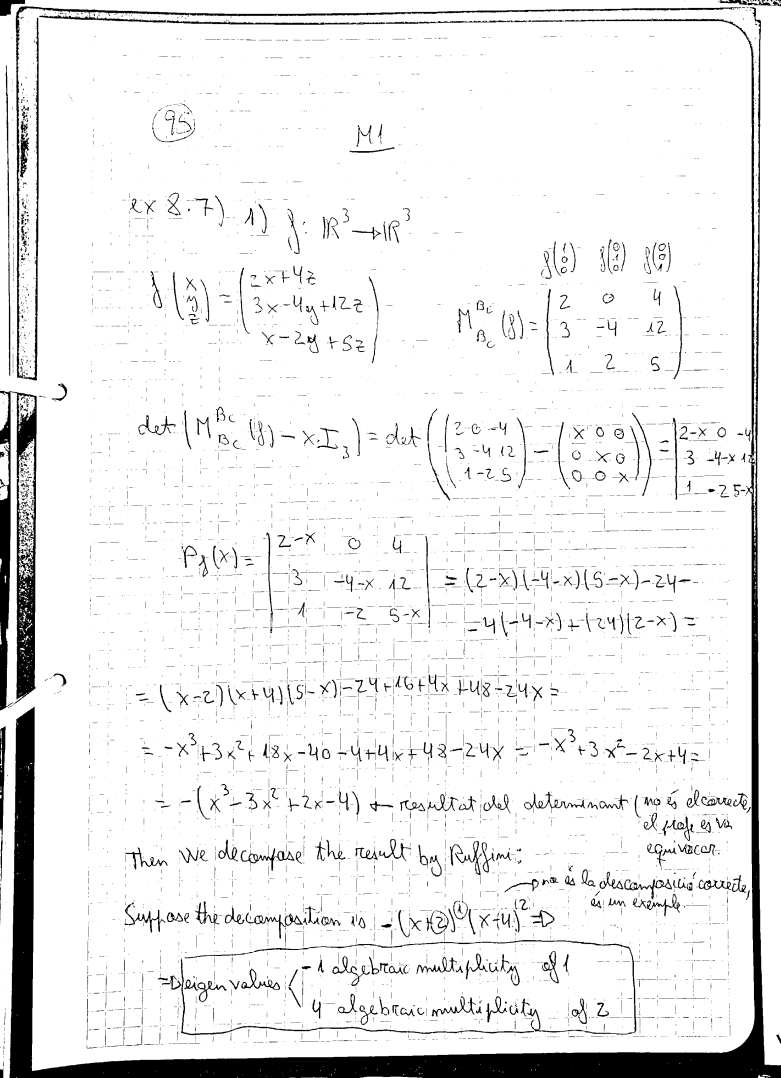 95
M1
ex 8.7) 1) f: ℝ³→ℝ³
f(x y z) = (2x+4z 3x-4y+12z x-2y+5z)
f(1 0 0) f(0 1 0) f(0 0 1)
M_Bc^Bc (f) = (2 0 4
3 -4 12
1 2 5)
det(M_Bc^Bc (f) - x·I₃) = det((2 0 -4 3 -4 12 1 -2 5) - (x 0 0 0 x 0 0 0 x)) = |2-x 0 -4 3 -4-x 12 1 -2 5-x|
P_f(x) = |2-x 0 4
3 -4-x 12
1 -2 5-x| = (2-x)(-4-x)(5-x)-24-
-4(-4-x)+(24)(2-x) =
= (x-2)(x+4)(5-x)-24+16+4x+48-24x =
= -x³+3x²+18x-40-4+4x+48-24x = -x³+3x²-2x+4=
= -(x³-3x²+2x-4) ← resultat del determinant (no és el correcte,
el profe es va
equivocar.
Then we decompose the result by Ruffini:
→ no és la descomposició correcte,
és un exemple
Suppose the decomposition is -(x+2)^① (x-4)^② ⇒
⇒ eigen values < -1 algebraic multiplicity of 1
4 algebraic multiplicity of 2